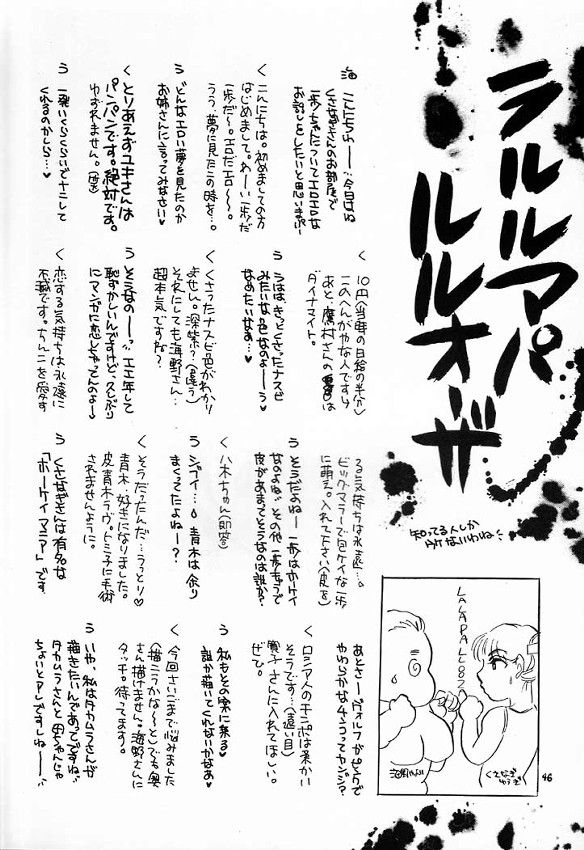 ラルルマパ
ルルオーザ
知ってる人しか
ウケないわね
海 こんにちわー…今日はね
くさなぎさんのお部屋で
一歩ちゃんについてエロエロな
お話しをしたいと思いまぷ
く こんにちは。初めましての方
はじめまして。わーい一歩だ
一歩だ〜。エロだエロ〜。
うう、夢に見たこの時を…。
う どんなエロい夢を見たのか
お姉さんに言ってみなさい♥
く とりあえずユキさんは
パンパンです。絶対です。
ゆずれません。
う 一発いくらくらいでナニして
くれるのかしら…♥
く 10円(当年の日給の半分)
このへんがやな人ですね
あと、鷹村さんの
ダイナマイト。
うはは、きっとくさったナスビ
みたいな色なのよーう
なめたいなぁ…♥
く くさったナスビ色がわかり
ません。深緑?(違う)
それにしても海野さん…
超本気ですね?
う そうなの〜…エエ年して
恥ずかしいんですけど、久しぶり
にマンガに恋しちゃってんのよ〜♥
く 恋する気持ちは永遠に
不滅です。ちんこを愛す
る気持ちは永遠…。
ビックマラーで包ケイな一歩
に萌え。入れて下さい(皮を)
う そうだよねー一歩はホーケイ
なのよね。その他一歩キャラで
皮があまってそうなのは誰か?
く 八木ちゃん(即答)
う ジョイー…青木は余り
まくってたよねー?
く そうだったんだ…うっとり♡
青木…好きになりました。
皮青木ラヴ。トミ子に手術
されませんように。
う くさなぎさんは有名な
「ホーケイマニア」です
あとさーヴォルフがピンクで
やわらかな4さつってカンジ?
く ロシア人のチンポは柔かい
そうです…(遠い目)
寛子さんに入れてほしい。
ぜひ。
う 私もその案に乗る♥
誰か描いてくれないかなあ♥
く 今回さいごまで悩みました
(描こうかな〜と)でも奥
さん描けません。海野さんに
タッチ。待ってます。
う いや、私はタカムラさんが
描きたいんであってですね
タカムラさんと母ちゃんじゃ
ちょいとアレですしねー…
LALAPALLOOZA
海野んんい
くさなぎ
ゆうぎ
46